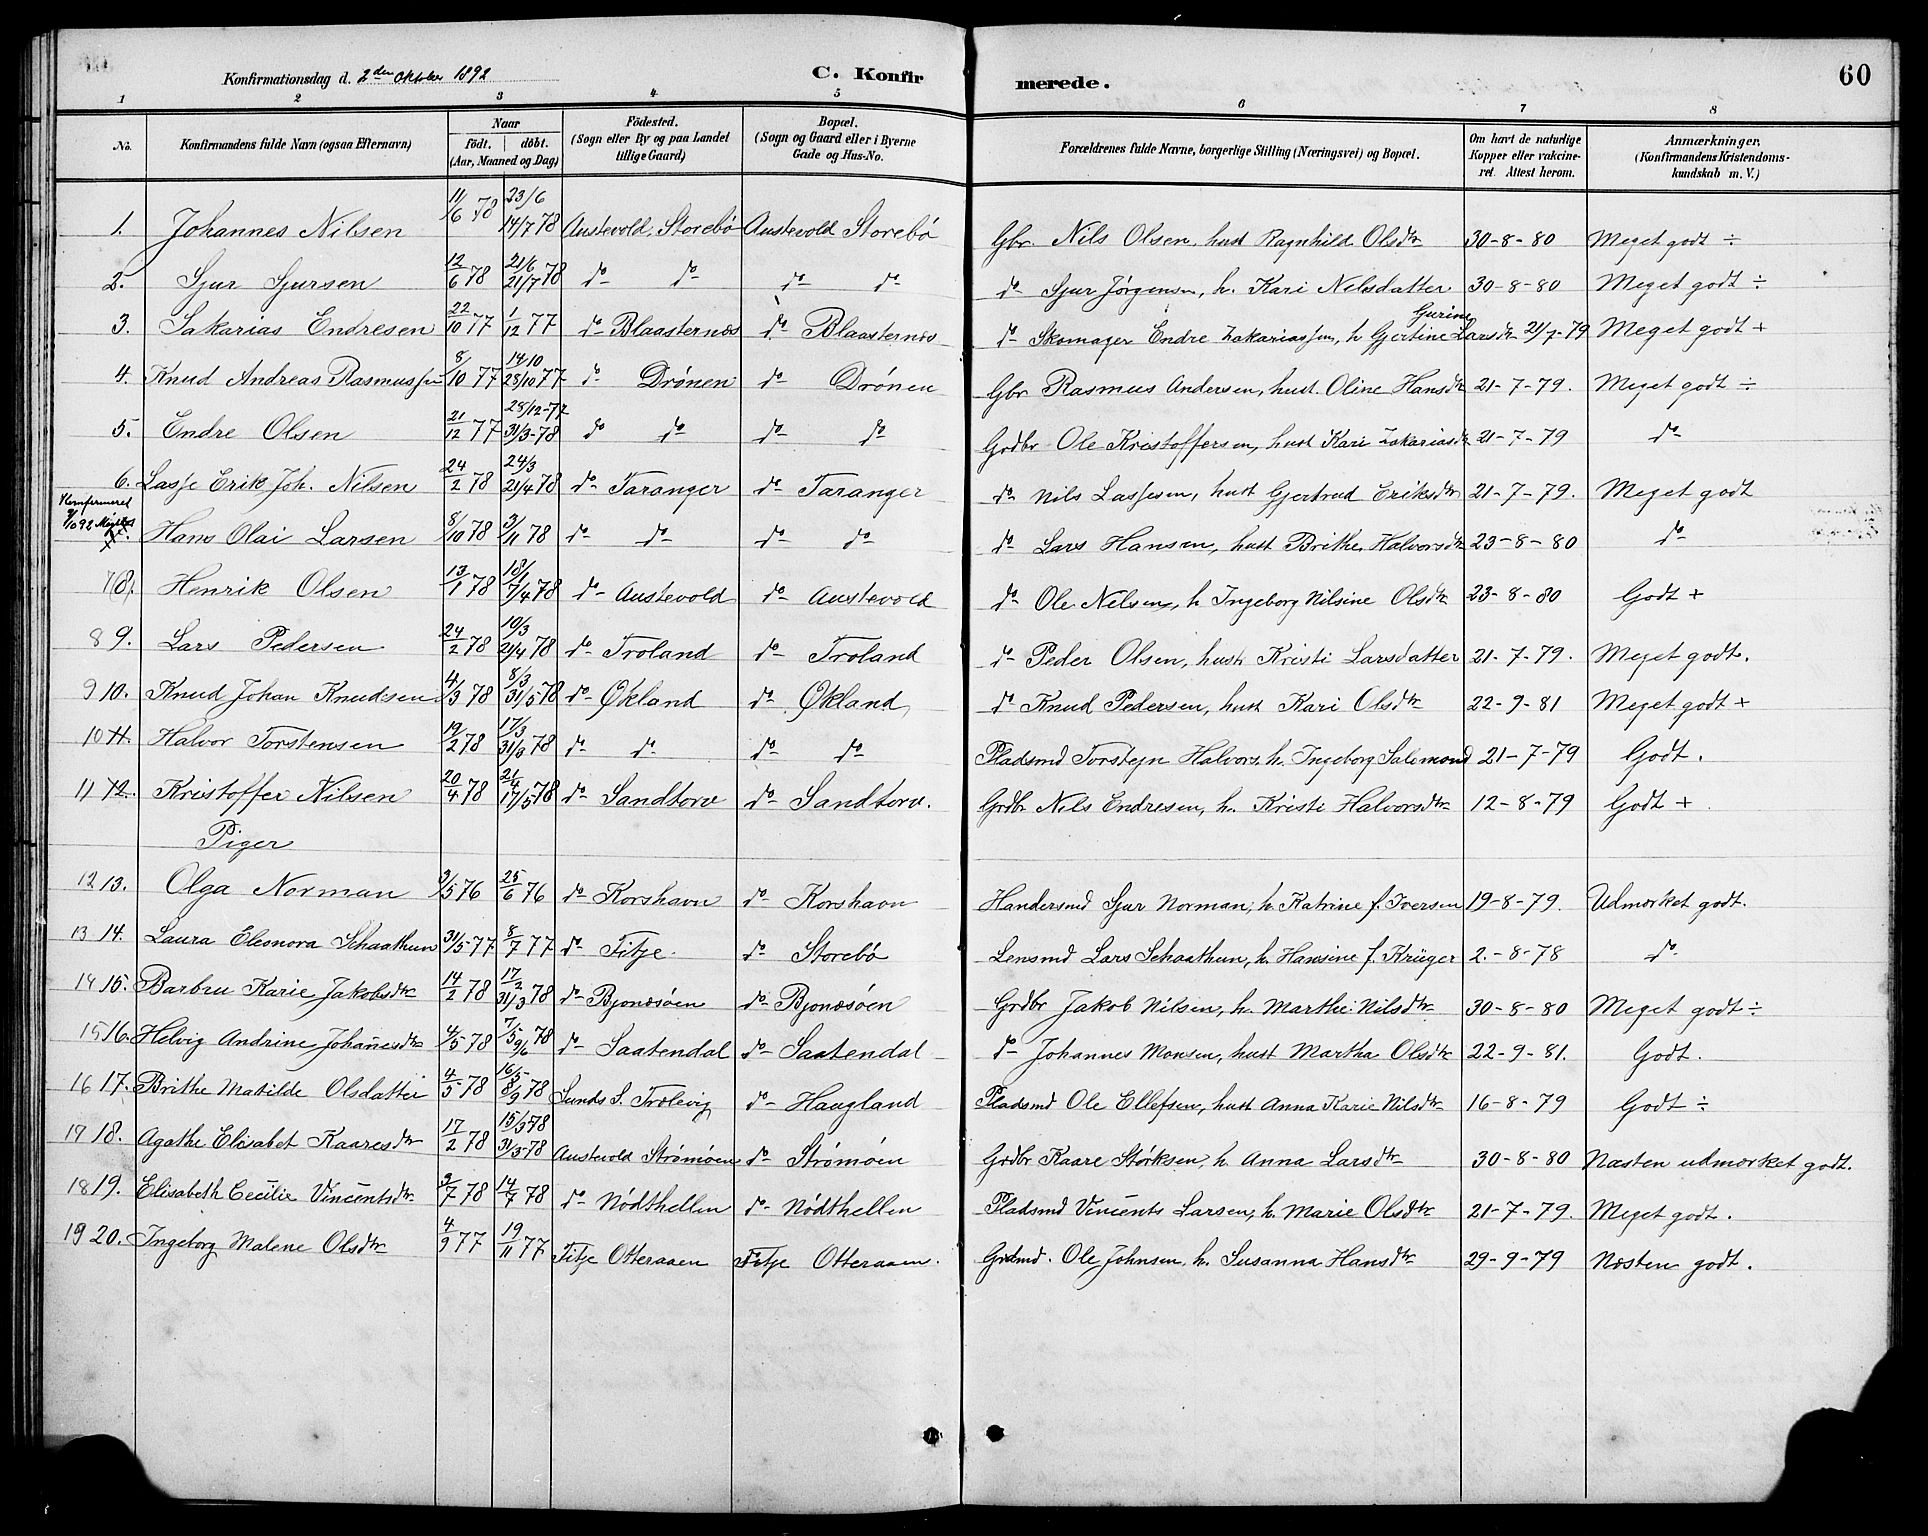 Konfirmationsdag d. 2den Oktober 1892
C. Konfir merede. 60
1 2 3 4 5 6 7 8
No. Konfirmandens fulde Navn (ogsaa Efternavn) Naar födt. döbt. (Aar, Maaned og Dag) Födested. (Sogn eller By og paa Landet tillige Gaard) Bopæl. (Sogn og Gaard eller i Byerne Gade og Hus-No. Forældrenes fulde Navne, borgerlige Stilling (Næringsvei) og Bopæl. Om havt de naturlige Kopper eller vakcineret. Attest herom. Anmærkninger. (Konfirmandens Kristendomskundskab m. V.)
1. Johannes Nilsen 11/6 78 23/6 14/7 78 Austevold, Storebö Austevold Storebö Gbr. Nils Olsen, hust Ragnhild Olsdtr 30-8-80 Meget godt ÷
2. Sjur Sjursen 12/6 78 21/6 21/7 78 do do do do do Sjur Jørgensen, h. Kari Nelsdatter 30-8-80 Meget godt ÷
3. Sakarias Endresen 22/10 77 1/12 77 do Blaasternæs do Blaasternæs do Skomager Endre Zakariassen, h Gjertine Gurine Larsdtr 21/7-79 Meget godt +
4. Knud Andreas Rasmussen 8/10 77 14/10 28/10 77 do Drönen do Drönen Gbr Rasmus Andersen, hust. Oline Hansdtr 21-7-79. Meget godt ÷
5. Endre Olsen 21/12 77 28/12-77 31/3-78 do do do do Grdbr Ole Kristoffersen, hust Kari Zakariasdtr 21-7-79 do
6. Lasse Erik Joh. Nilsen 24/2 78 24/3 21/4 78 do Taranger do Taranger do Nils Lassesen, hust Gjertrud Eriksdtr 21-7-79. Meget godt
Konfirmeret 9/10 92
7. Hans Olai Larsen 8/10 78 3/11 78 do do do do do Lars Hansen, hust Brithe Halvorsdtr 23-8-80 do
7 8. Henrik Olsen 13/1 78 18/1 7/4 78 do Austevold do Austevold do Ole Nelsen, h Ingeborg Nilsine Olsdtr 23-8-80 Godt +
8 9. Lars Pedersen 24/2 78 10/3 21/4 78 do Troland do Troland do Peder Olsen, hust Kristi Larsdatter 21-7-79. Meget godt.
9 10. Knud Johan Knudsen 4/3 78 8/3 31/5 78 do Økland do Økland do Knud Pedersen, hust Kari Olsdtr 22-9-81 Meget godt +
10 11. Halvor Torstensen 19/2 78 17/3 31/3 78 do do do do Pladsmd Torstejn Halvors. h. Ingeborg Salomond 21-7-79 Godt.
11 12. Kristoffer Nilsen 20/4 78 21/4 17/5 78 do Sandtorv do Sandtorv. Grdbr Nils Endresen, h. Kristi Halvorsdtr 12-8-79 Godt +
Piger
12 13. Olga Norman 3/5 76 25/6 76 do Korshavn do Korshavn Handersmd Sjur Norman, h. Katrine f. Iversen 19-8-79. Udmærket godt.
13 14. Laura Eleonora Schaathun 31/5-77 8/7 77 do Fitje do Storebö Lensmd Lars Schaathun, h. Hansine f. Krüger 2.-8-78 do
14 15. Barbru Karie Jakobsdtr 14/2 78 17/2 31/3 78 do Bjonæsöen do Bjonæsöen Grdbr Jakob Nilsen, h. Marthe Nilsdtr 30-8-80 Meget godt ÷
15 16. Helvig Andrine Johannesdtr 4/5 78 7/5 9/6 78 do Saatendal do Saatendal do Johannes Monsen, hust Martha Olsdtr 22-9-81. Godt.
16 17. Brithe Matilde Olsdatter 4/5 78 16/5 8/9 78 Sunds S. Trolevig do Haugland Pladsmd Ole Ellefsen, hust Anna Karie Nilsdtr 16-8-79 Godt ÷
17 18. Agathe Elisabet Kaaresdtr 17/2 78 15/3 78 31/3-78 Austevold Strömöen do Strömöen Grdbr Kaare Störksen, h. Anna Larsdtr 30-8-80 Næsten udmærket godt.
18 19. Elisabeth Cecilie Vincentsdtr 2/7 78 14/7 78 do Nödthellen do Nödthellen Pladsmd Vincents Larsen, h. Marie Olsdtr 21-7-79. Meget godt.
19 20. Ingeborg Malene Olsdtr 4/9 77 19/11 77 Fitje Otteraaen Fitje Otteraaen. Grdmd. Ole Johnsen, h. Susanna Hansdtr 29-9-79 Næsten godt.